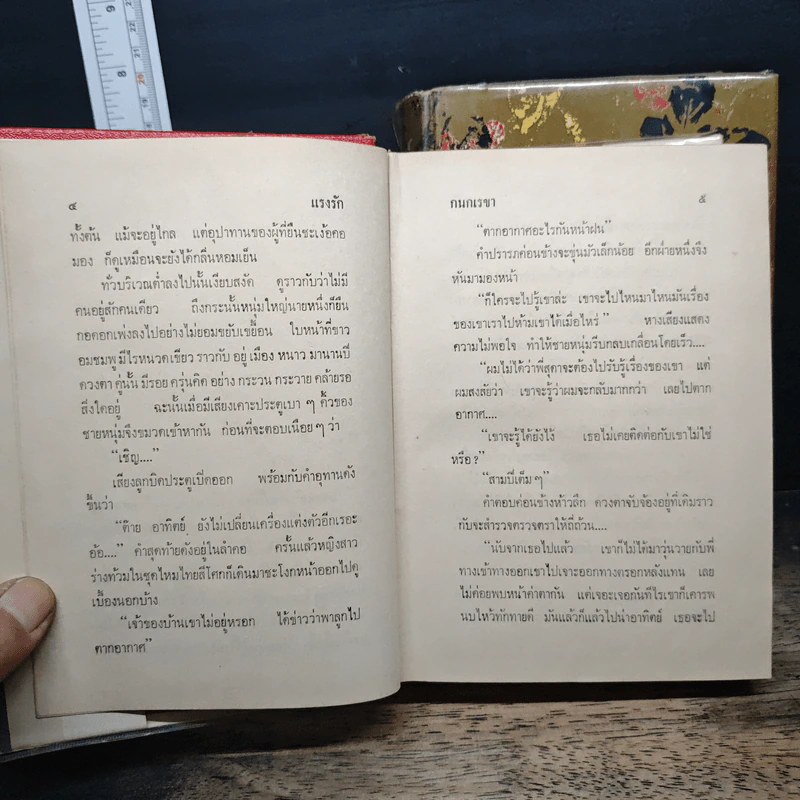 ๔ แรงรัก
ทั้งต้น แม้จะอยู่ไกล แต่อุปาทานของผู้ที่ยืนชะเง้อคอ
มอง ก็ดูเหมือนจะยังได้กลิ่นหอมเย็น
ทั่วบริเวณต่ำลงไปนั้นเงียบสงัด ดูราวกับว่าไม่มี
คนอยู่สักคนเดียว ถึงกระนั้นหนุ่มใหญ่นายหนึ่งก็ยืน
กอดอกเพ่งลงไปอย่างไม่ยอมขยับเขยื้อน ใบหน้าที่ขาว
อมชมพู มีไรหนวดเขียว ราวกับ อยู่ เมือง หนาว มานานปี
ดวงตา คู่นั้น มีรอย ครุ่นคิด อย่าง กระวน กระวาย คล้ายรอ
สิ่งใดอยู่ ฉะนั้นเมื่อมีเสียงเคาะประตูเบา ๆ คิ้วของ
ชายหนุ่มจึงขมวดเข้าหากัน ก่อนที่จะตอบเนือย ๆ ว่า
“เชิญ....”
เสียงลูกบิดประตูเปิดออก พร้อมกับคำอุทานดัง
ขึ้นว่า
“ต๊าย อาทิตย์ ยังไม่เปลี่ยนเครื่องแต่งตัวอีกเรอะ
อ้อ....” คำสุดท้ายดังอยู่ในลำคอ ครั้นแล้วหญิงสาว
ร่างท้วมในชุดไหมไทยสีโศกก็เดินมาชะโงกหน้าออกไปดู
เบื้องนอกบ้าง
“เจ้าของบ้านเขาไม่อยู่หรอก ได้ข่าวว่าพาลูกไป
ตากอากาศ”
กนกเรขา ๕
“ตากอากาศอะไรกันหน้าฝน”
คำปรารภค่อนข้างจะขุ่นมัวเล็กน้อย อีกฝ่ายหนึ่งจึง
หันมามองหน้า
“ก็ใครจะไปรู้เขาล่ะ เขาจะไปไหนมาไหนมันเรื่อง
ของเขาเราไปห้ามเขาได้เมื่อไหร่” หางเสียงแสดง
ความไม่พอใจ ทำให้ชายหนุ่มรีบกลบเกลื่อนโดยเร็ว....
“ผมไม่ได้ว่าพี่สุดาจะต้องไปรับรู้เรื่องของเขา แต่
ผมสงสัยว่า เขาจะรู้ว่าผมจะกลับมากกว่า เลยไปตาก
อากาศ....
“เขาจะรู้ได้ยังไง้ เธอไม่เคยติดต่อกับเขาไม่ใช่
หรือ?”
“สามปีเต็ม ๆ”
คำตอบค่อนข้างห้าวลึก ดวงตาจับจ้องอยู่ที่เดิมราว
กับจะสำรวจตรวจตราให้ถี่ถ้วน....
“นับจากเธอไปแล้ว เขาก็ไม่ได้มาวุ่นวายกับพี่
ทางเข้าทางออกเขาไปเจาะออกทางตรอกหลังแทน เลย
ไม่ค่อยพบหน้าค่าตากัน แต่เจอะเจอกันทีไรเขาก็เคารพ
นบไหว้ทักทายดี มันแล้วก็แล้วไปน่าอาทิตย์ เธอจะไป